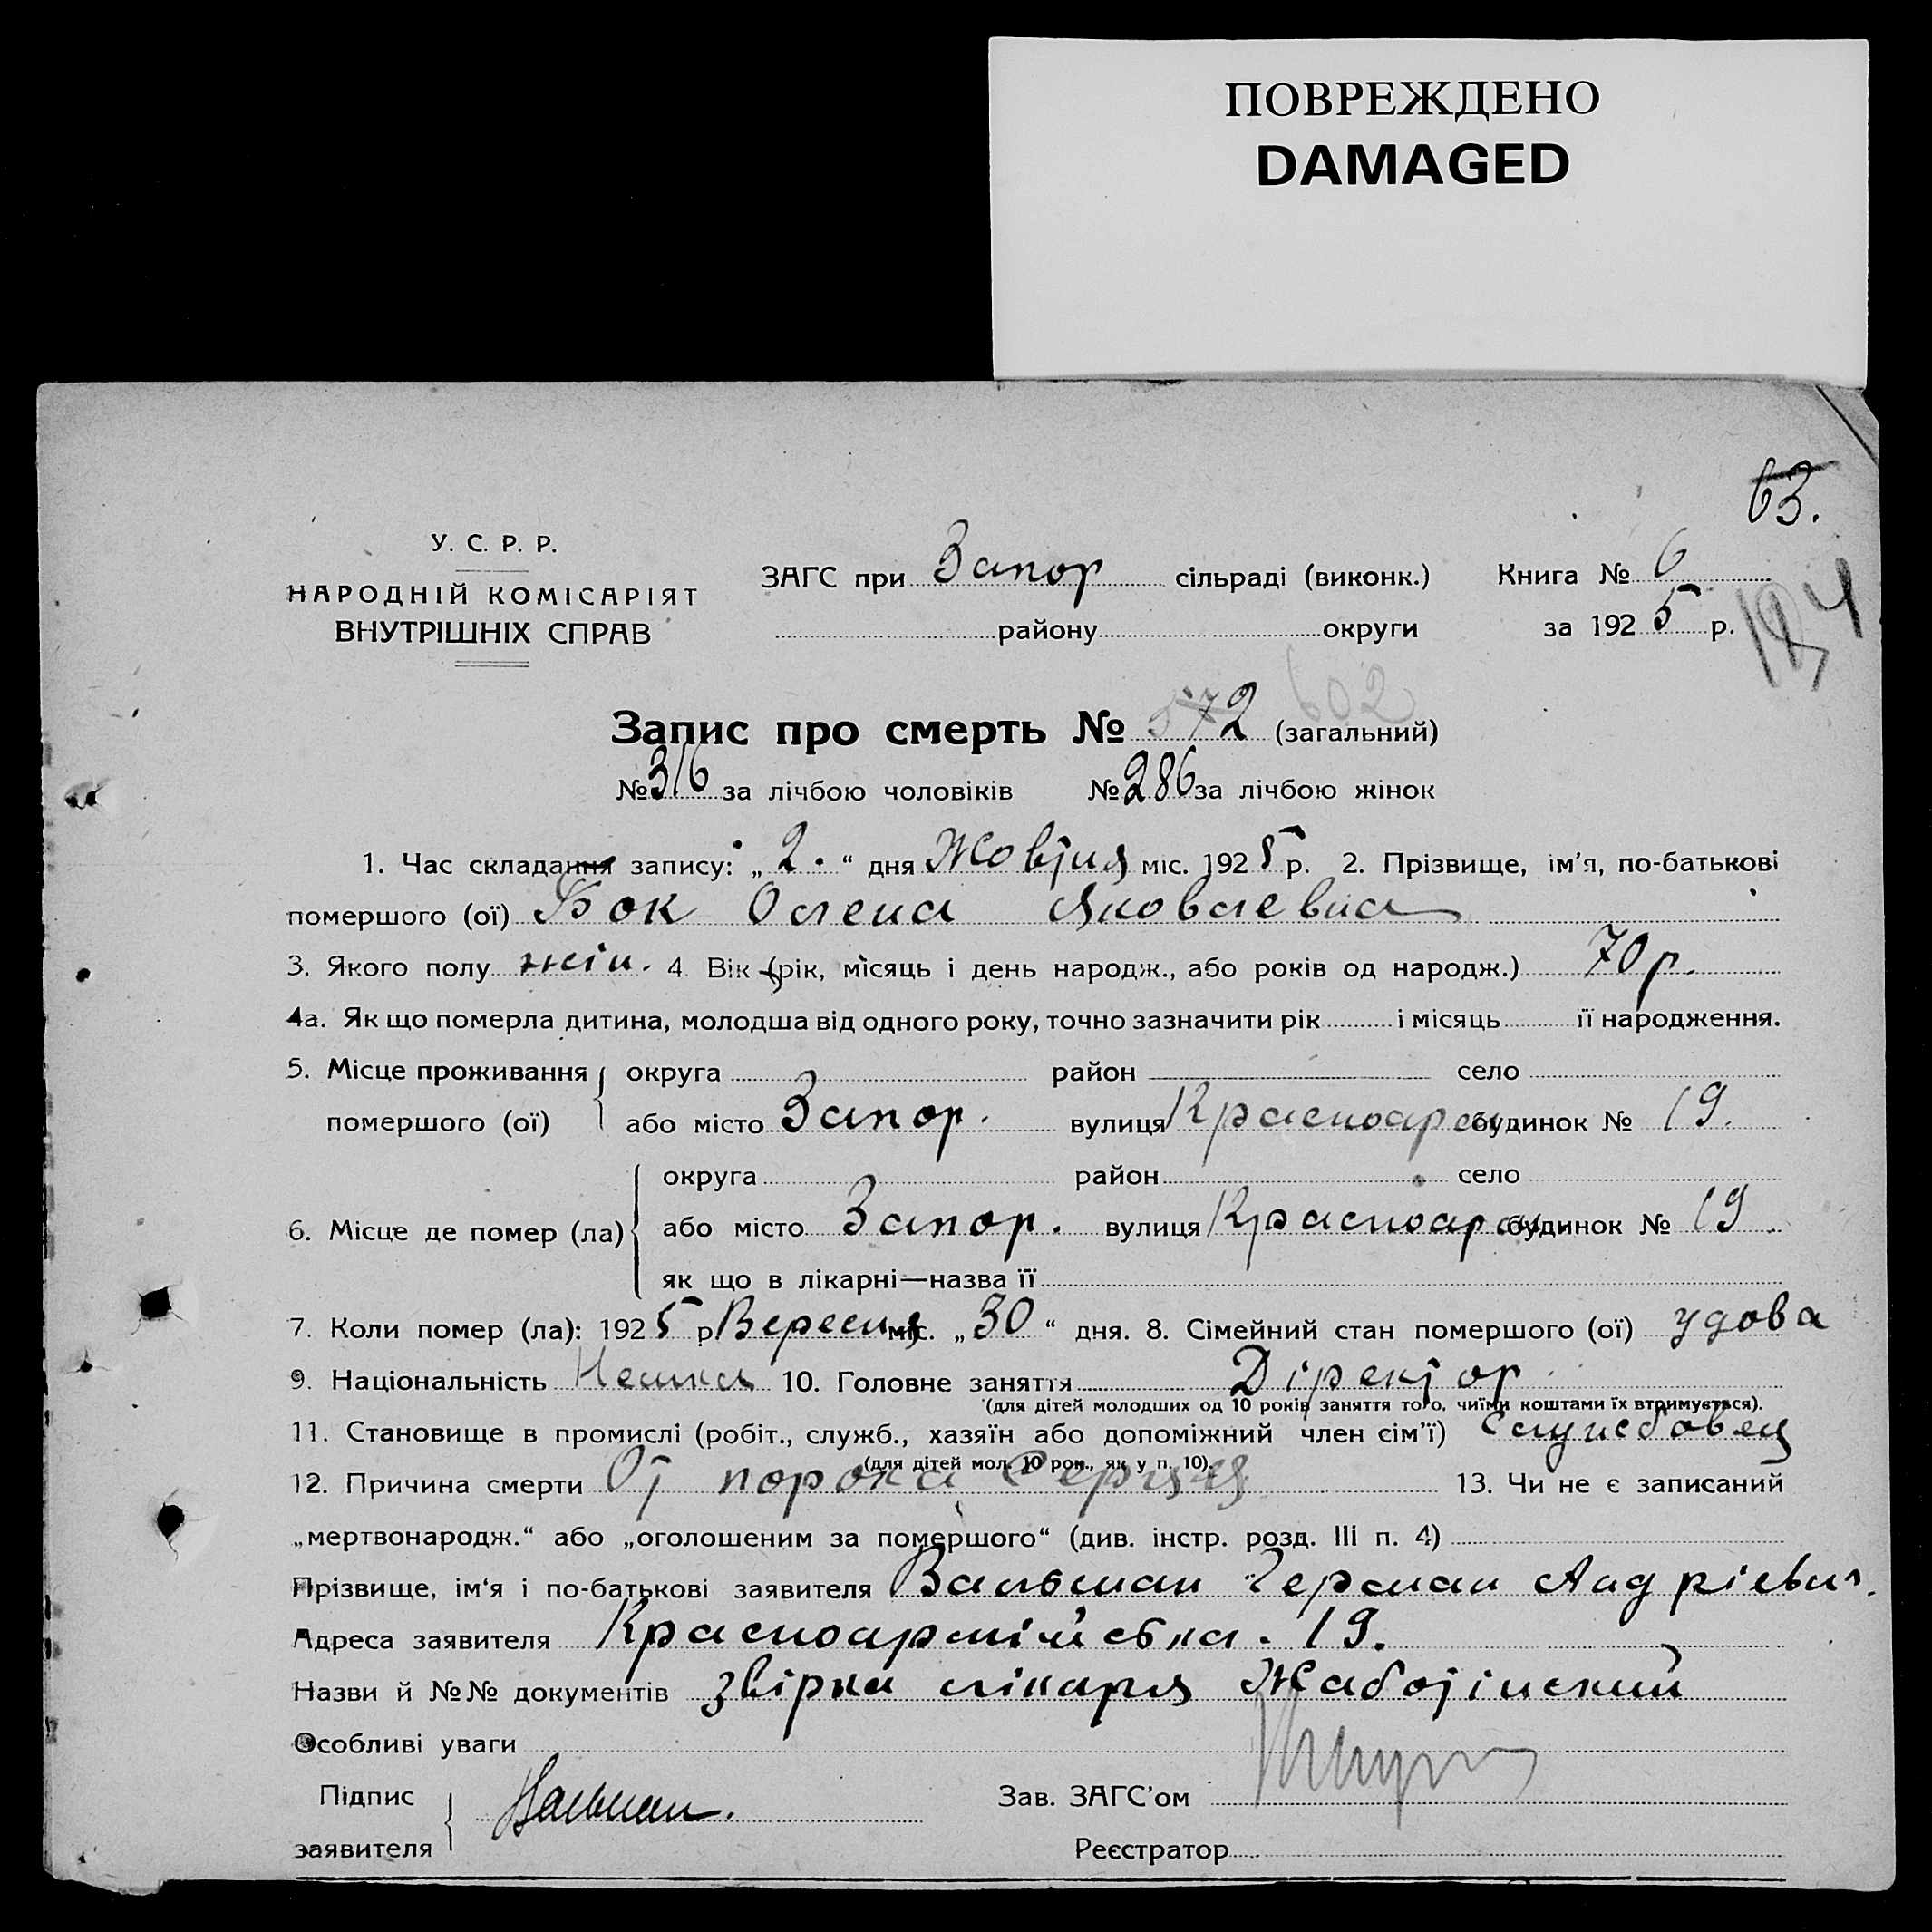 ПОВРЕЖДЕНО
DAMAGED
63.
У. С. Р. Р.
НАРОДНІЙ КОМІСАРІЯТ
ВНУТРІШНІХ СПРАВ
ЗАГС при Запор сільраді (виконк.) Книга № 6
району округи за 1925 р.
602
Запис про смерть № 572 (загальний)
№ 316 за лічбою чоловіків № 286 за лічбою жінок
1. Час складання запису: „2.“ дня Жовтня міс. 1925 р. 2. Прізвище, ім’я, по-батькові
помершого (ої) Бок Олена Яковлевна
3. Якого полу жін. 4 Вік (рік, місяць і день народж., або років од народж.) 70 р.
4а. Як що померла дитина, молодша від одного року, точно зазначити рік і місяць її народження.
5. Місце проживання округа район село
помершого (ої) або місто Запор. вулиця Красноарм будинок № 19.
округа район село
6. Місце де помер (ла) або місто Запор. вулиця Красноарм. будинок № 19
як що в лікарні—назва її
7. Коли помер (ла): 1925 р Вересня міс. „30“ дня. 8. Сімейний стан помершого (ої) удова
9. Національність Немка 10. Головне заняття Діректор
(для дітей молодших од 10 років заняття того, чиїми коштами їх втримується).
11. Становище в промислі (робіт., служб., хазяїн або допоміжний член сім’ї) Службовец
(для дітей мол. 10 рок., як у п. 10).
12. Причина смерти От порока Серця 13. Чи не є записаний
„мертвонародж.“ або „оголошеним за помершого“ (див. інстр. розд. III п. 4)
Прізвище, ім‘я і по-батькові заявителя Вальман Герман Андріевич.
Адреса заявителя Красноармійська. 19.
Назви й №№ документів звірка лікаря Жаботінский
Особливі уваги
Підпис Вальман. Зав. ЗАГС’ом
заявителя Реєстратор